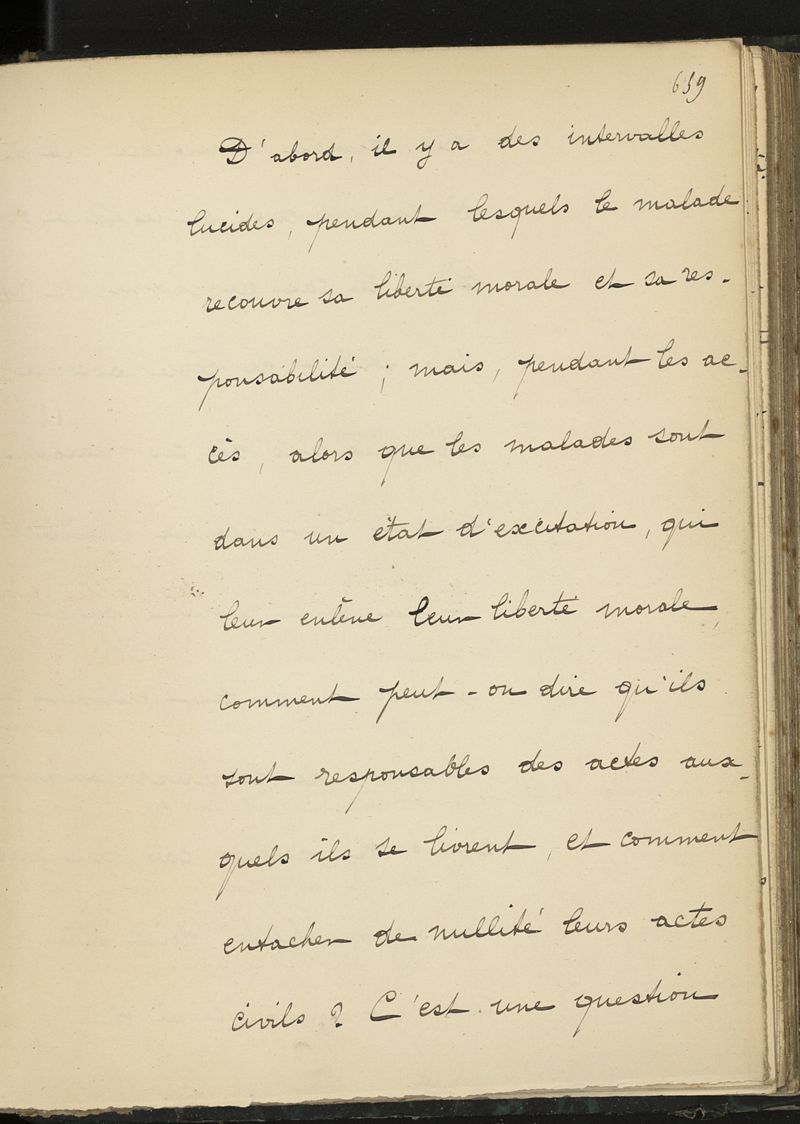 659
D'abord, il y a des intervalles
lucides, pendant lesquels le malade
recouvre sa liberté morale et sa res-
ponsabilité ; mais, pendant les ac-
cès, alors que les malades sont
dans un état d'excitation, qui
leur enlève leur liberté morale,
comment peut-on dire qu'ils
sont responsables des actes aux-
quels ils se livrent, et comment
entacher de nullité leurs actes
civils ? C'est une question